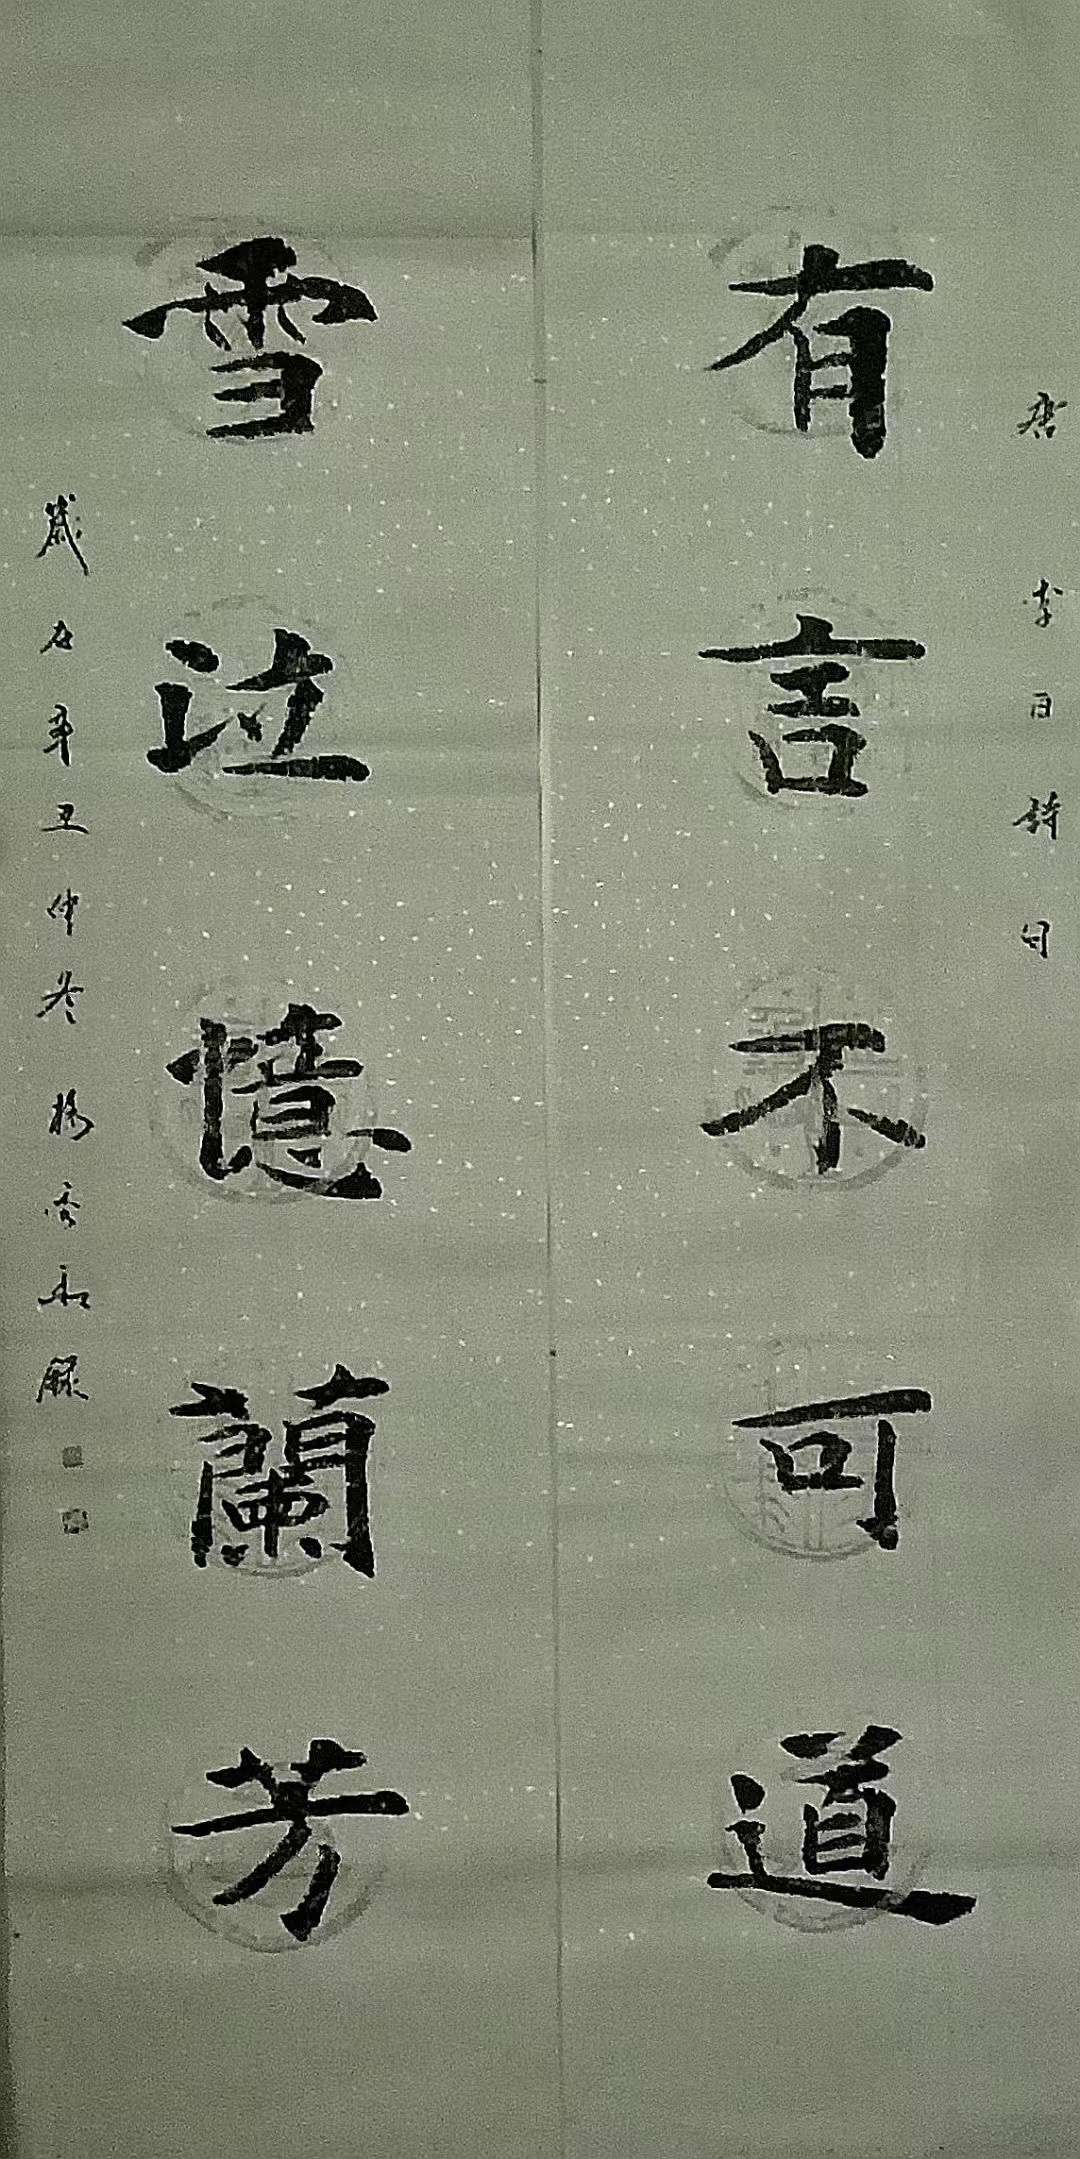 唐李白詩句
有言不可道
雪泣憶蘭芳
歲在辛丑仲冬楊